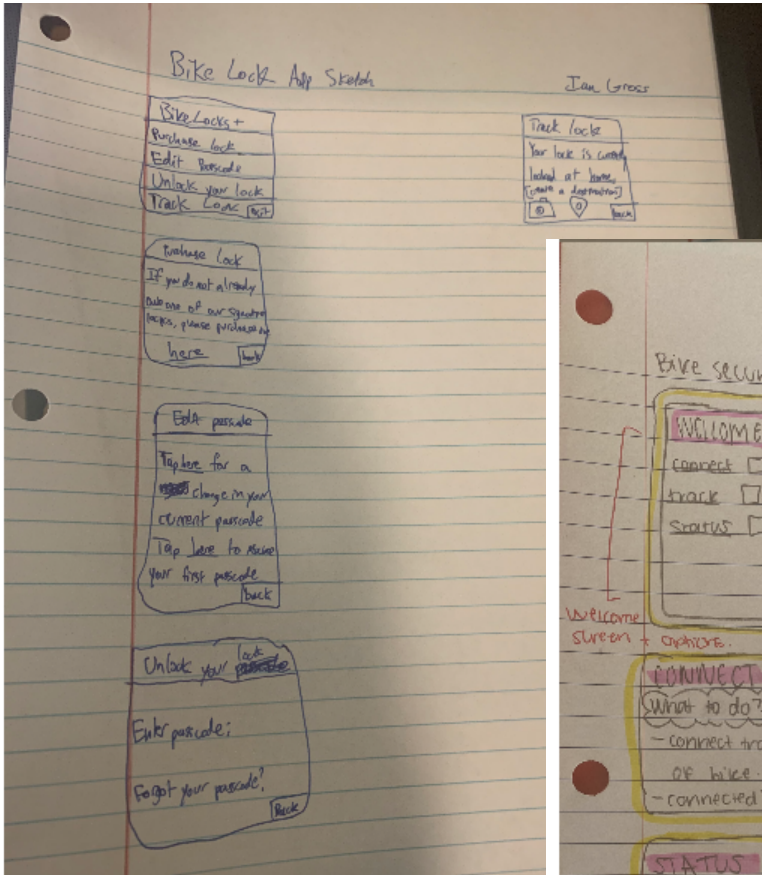 Bike Lock App Sketch
Ian Gross
BikeLocks+
Purchase lock
Edit Passcode
Unlock your lock
Track Lock
Exit
Track lock
Your lock is
locked at home
[create a destination]
back
Purchase lock
If you do not already
own one of our signature
locks, please purchase one
here
back
Edit passcode
Tap here for a
change in your
current passcode
Tap here to
your first passcode
back
Unlock your lock
Enter passcode:
Forgot your passcode?
Back
Bike secur
WELCOME
connect
track
status
welcome
screen + options.
CONNECT
What to do?
- connect tra
of bike.
- connected
STATUS